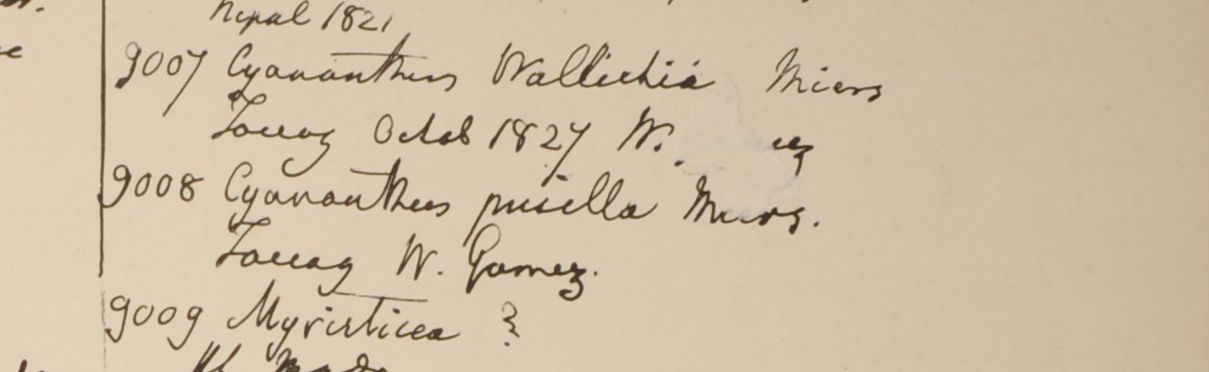 Nepal 1821
9007 Cyananthus Wallichia Miers
Tavoy Octob 1827 W. ez
9008 Cyananthus pusilla Miers.
Tavoy W. Gomez.
9009 Myristicea ?